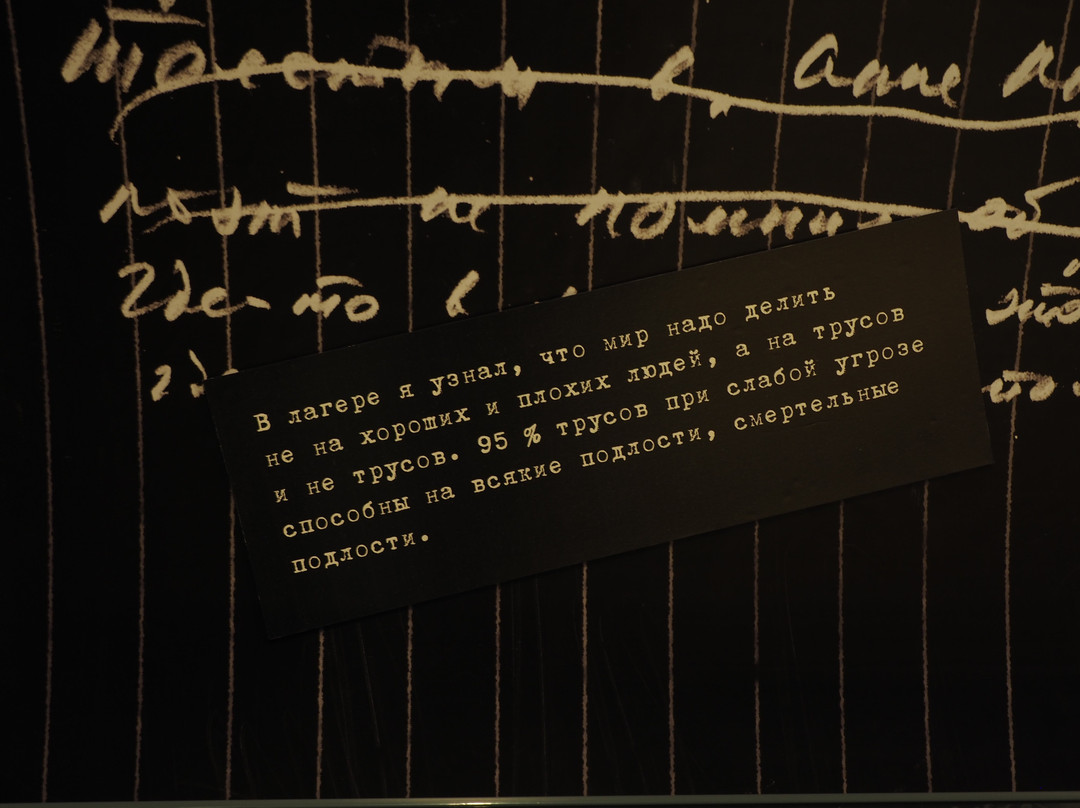 в, Анне
не помнит
Где-то в
В лагере я узнал, что мир надо делить
не на хороших и плохих людей, а на трусов
и не трусов. 95 % трусов при слабой угрозе
способны на всякие подлости, смертельные
подлости.